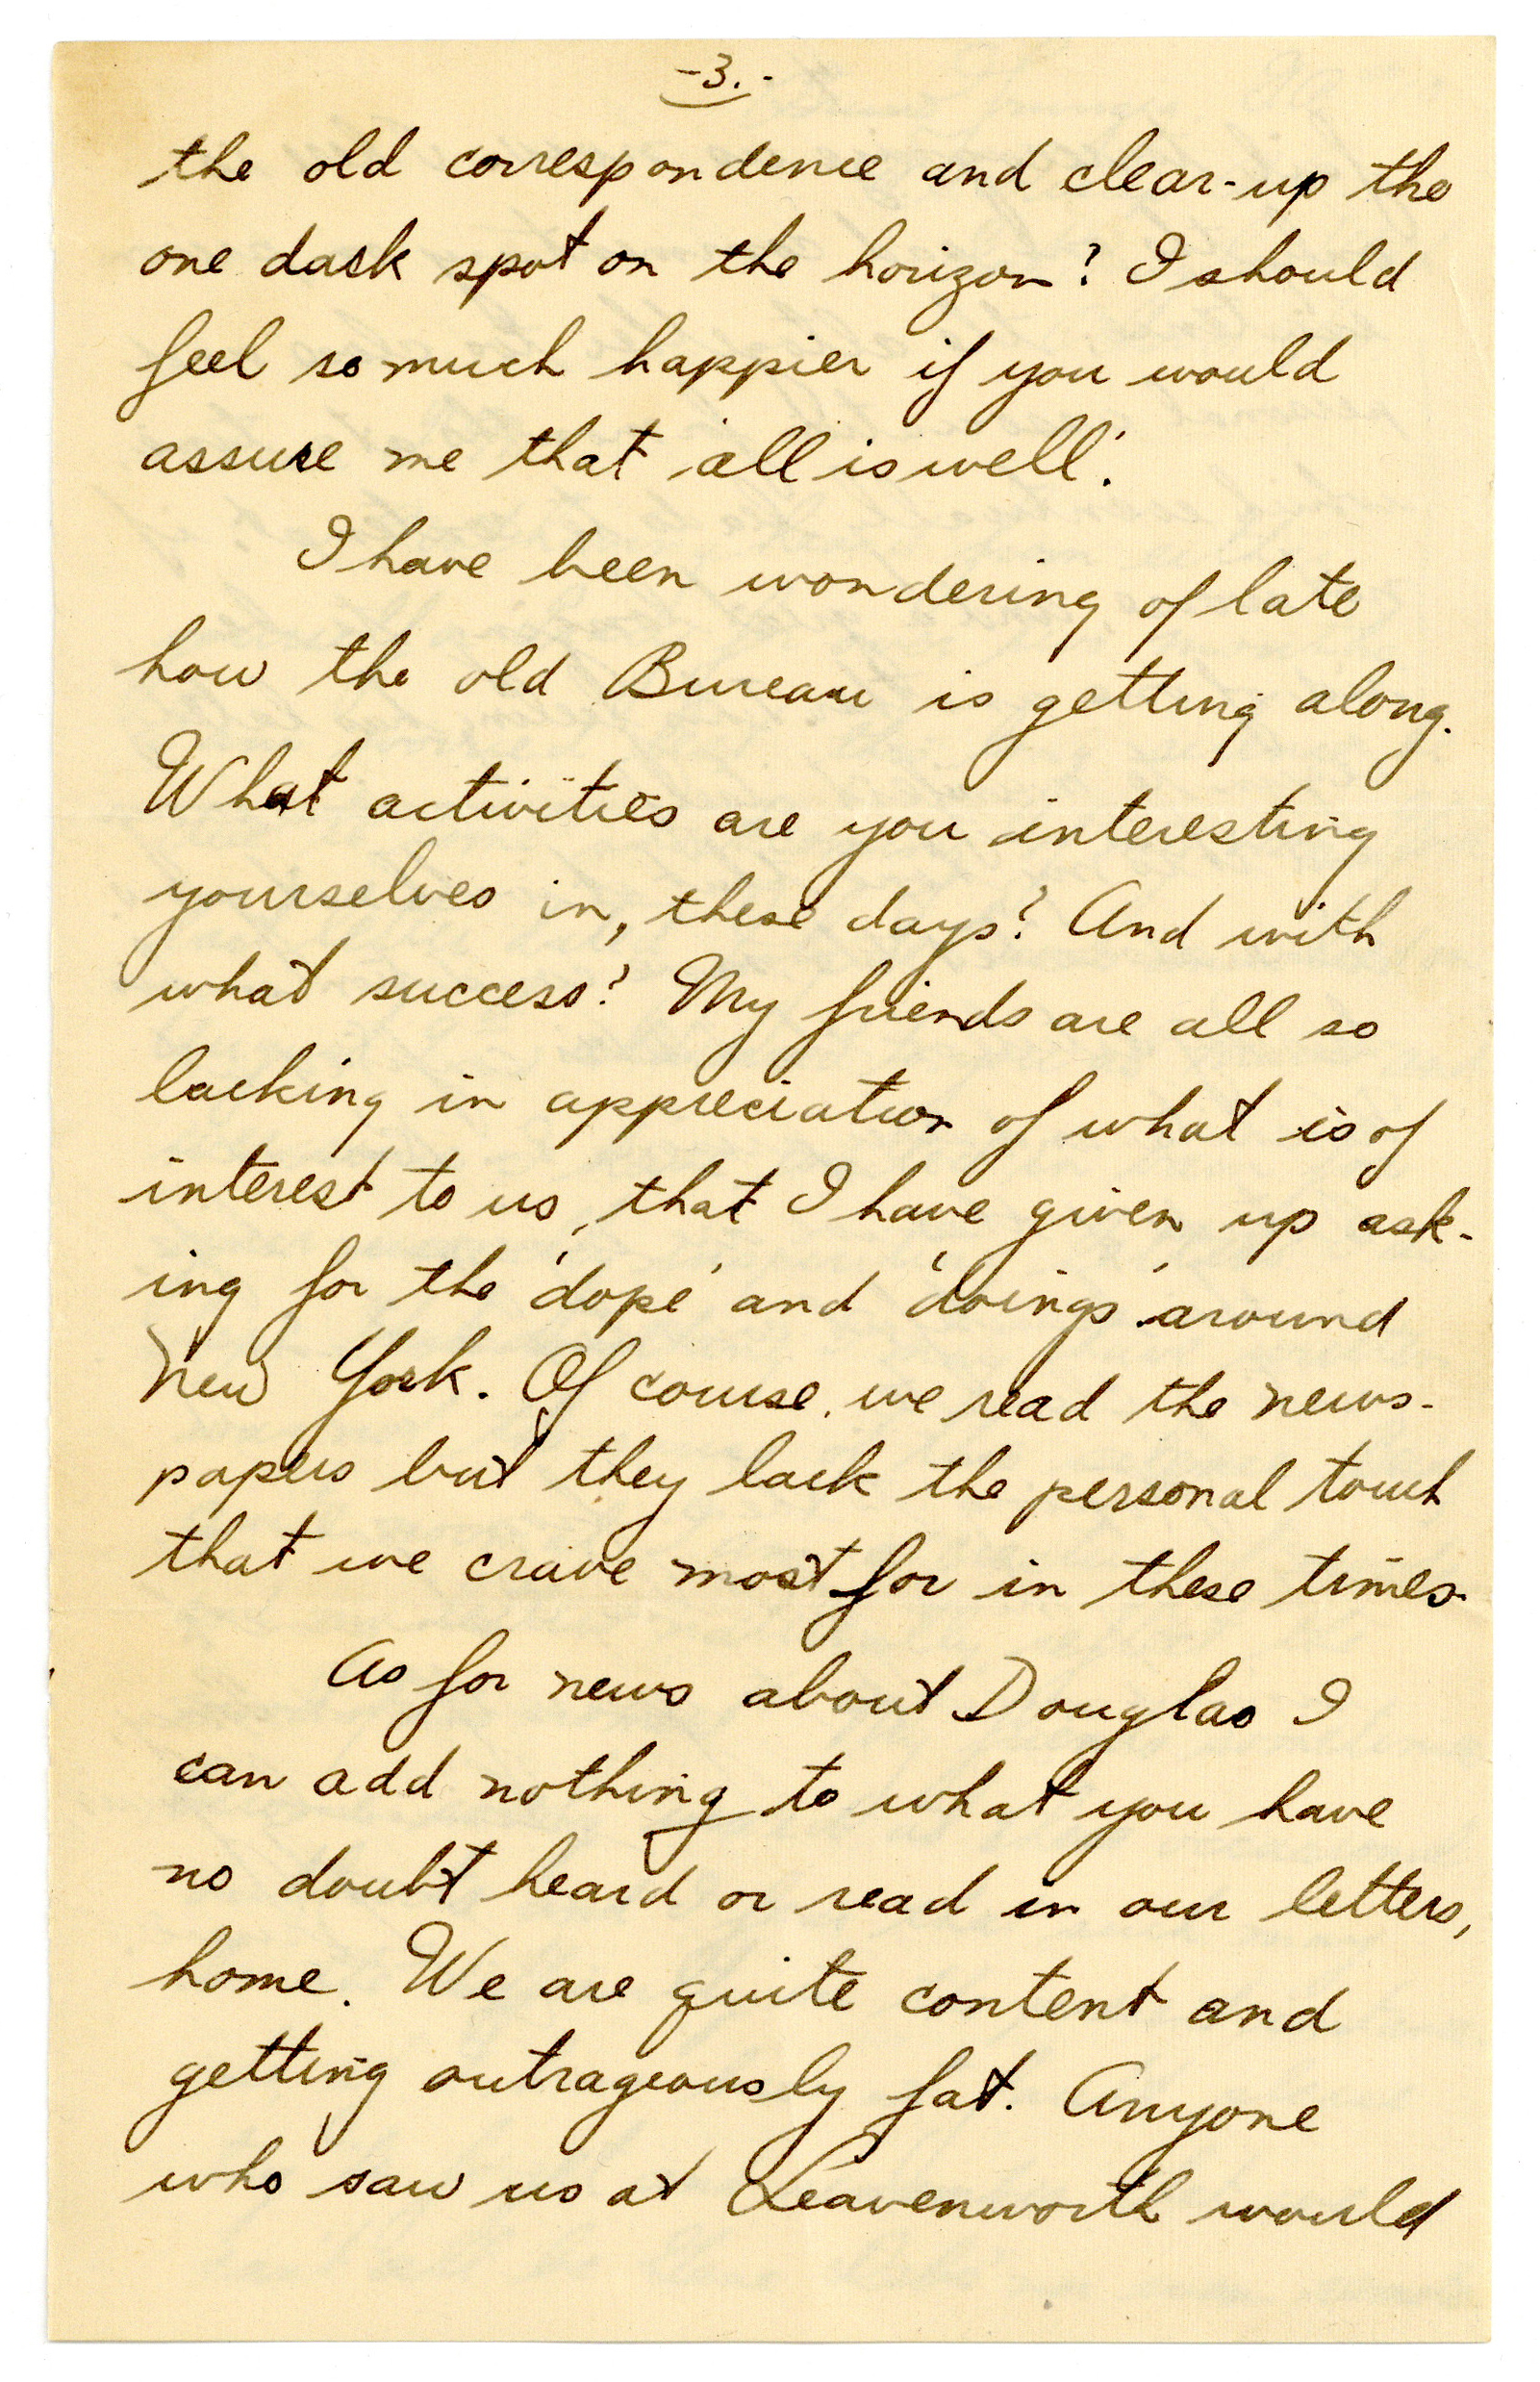 -3.-
the old correspondence and clear-up the
one dark spot on the horizon? I should
feel so much happier if you would
assure me that 'all is well'.
I have been wondering of late
how the old Bureau is getting along.
What activities are you interesting
yourselves in, these days? And with
what success? My friends are all so
lacking in appreciation of what is of
interest to us, that I have given up ask-
ing for the 'dope' and 'doings' around
New York. Of course, we read the news-
papers but they lack the personal touch
that we crave most for in these times.
As for news about Douglas I
can add nothing to what you have
no doubt heard or read in our letters,
home. We are quite content and
getting outrageously fat. Anyone
who saw us at Leavenworth would